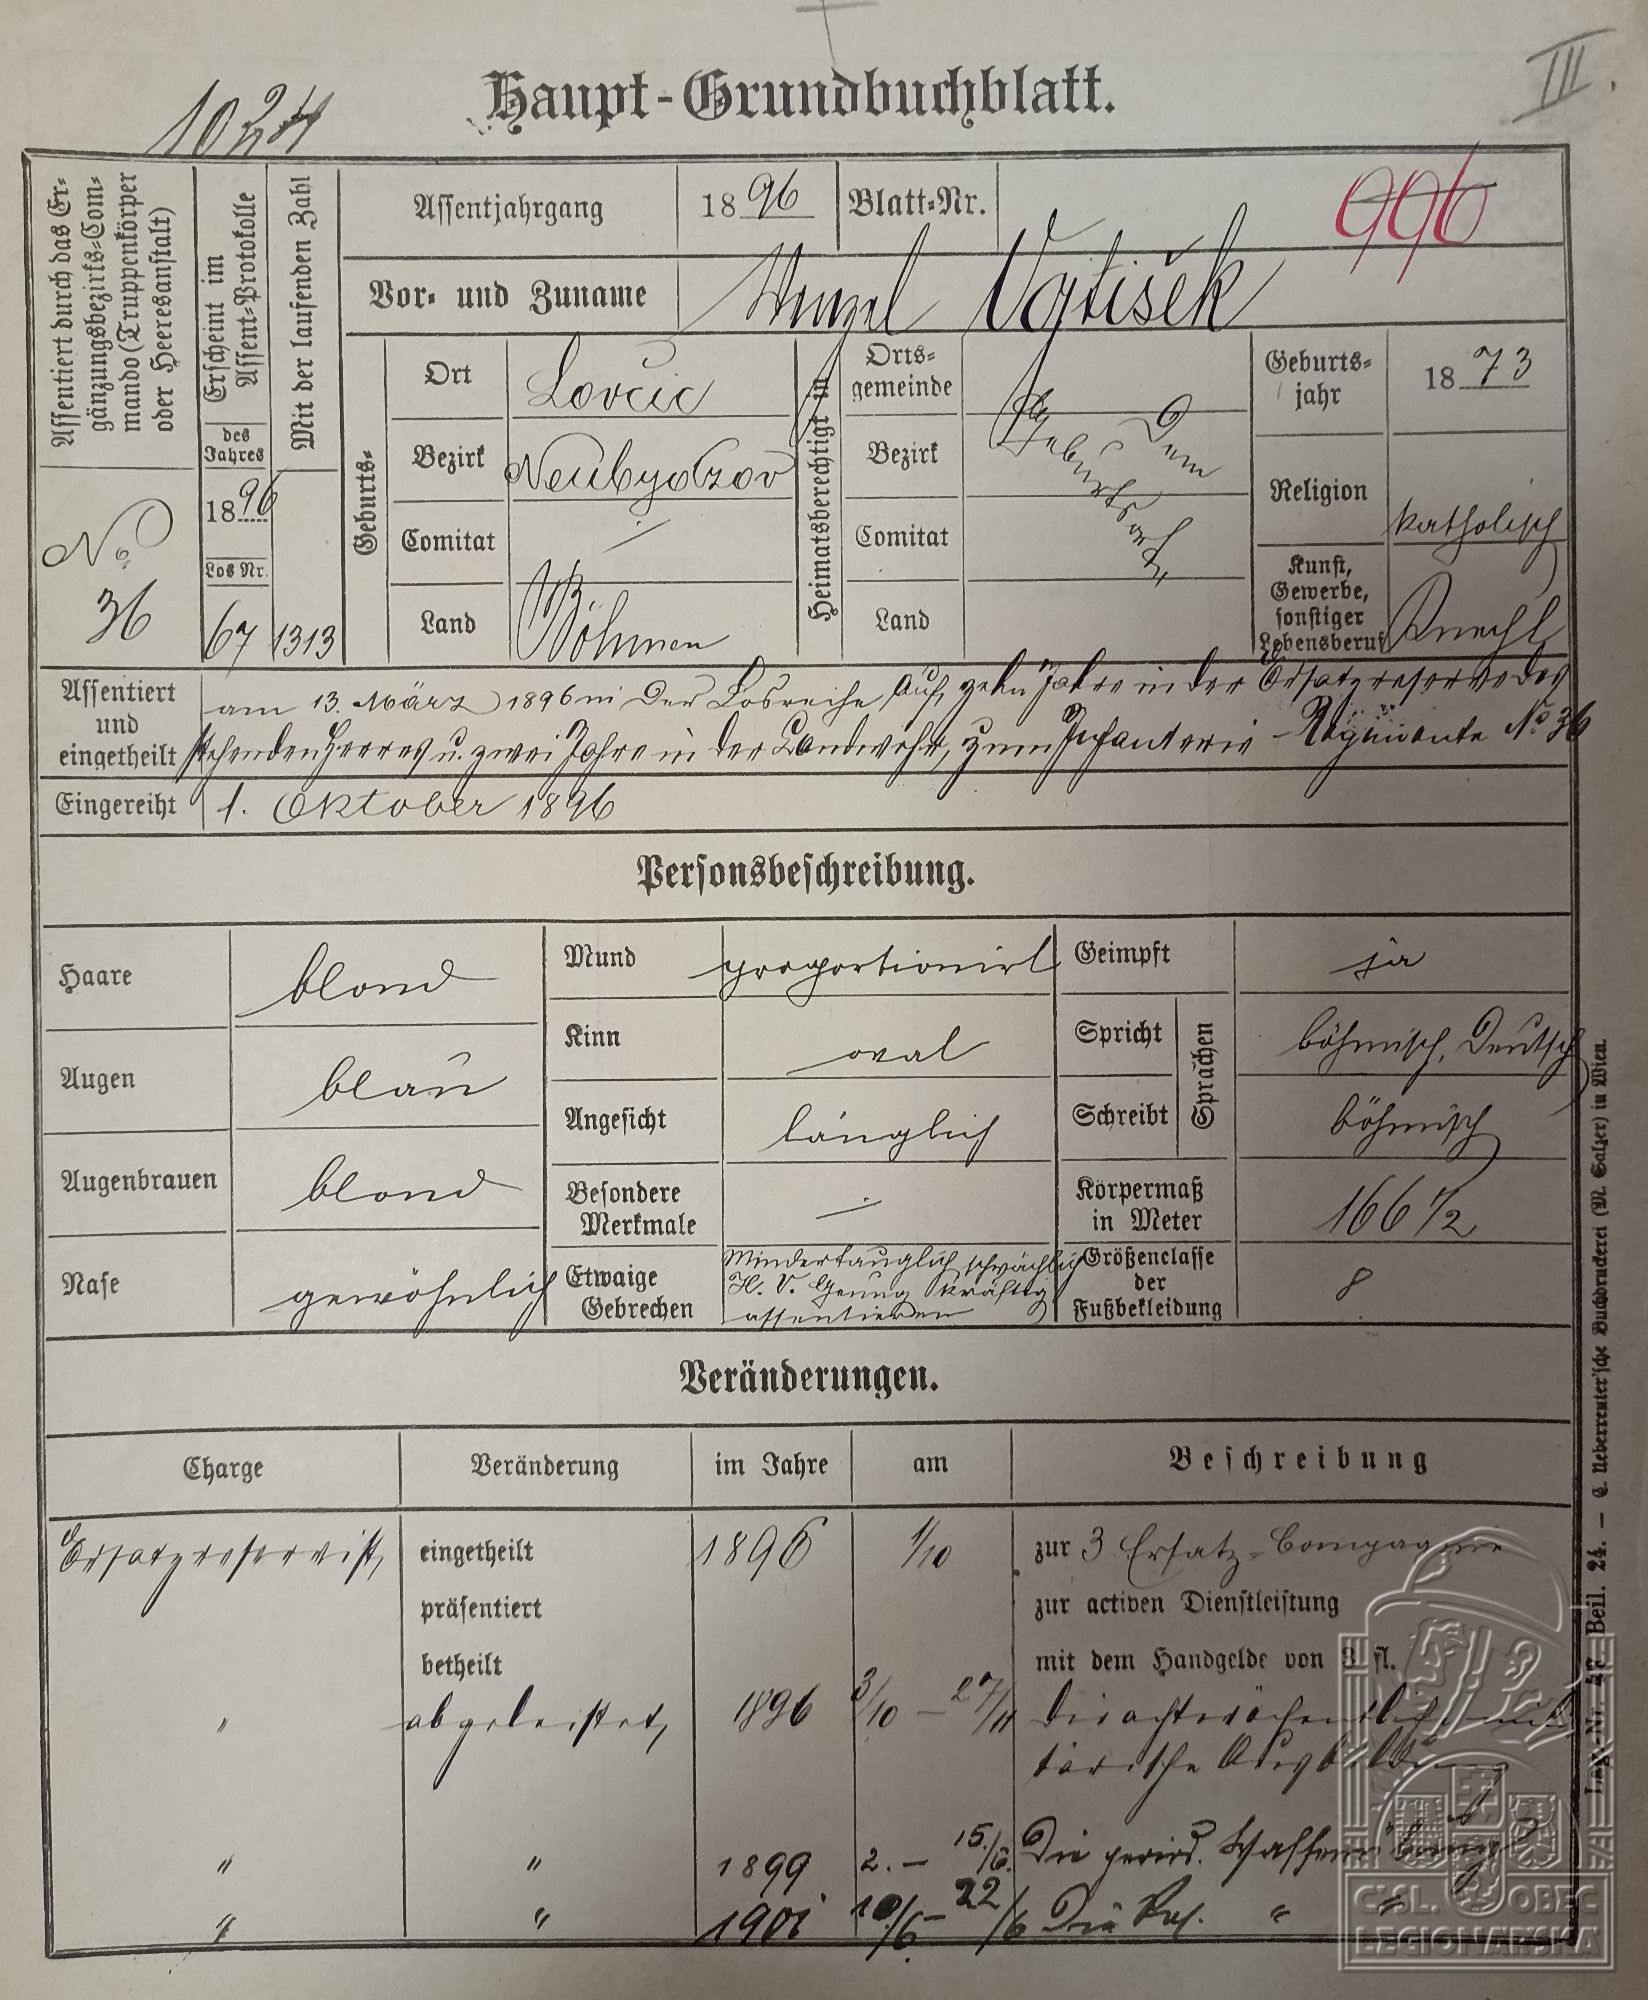 III.
Haupt-Grundbuchblatt.
Assentiert durch das Er-
gänzungsbezirks-Com-
mando (Truppenkörper
oder Heeresanstalt)
No
36
Erscheint im
Assent-Protokolle
des
Jahres
1896
Los Nr.
67
Mit der laufenden Zahl
1313
Assentjahrgang
1896
Blatt-Nr.
996
Vor- und Zuname
Wenzel Vojtišek
Geburts-
Ort
Lovčic
Bezirk
Neubydzov
Comitat
Land
Böhmen
Heimatsberechtigt in
Orts-
gemeinde
Bezirk
Comitat
Land
Geburts-
jahr
1873
Religion
katholisch
Kunst,
Gewerbe,
sonstiger
Lebensberuf
Knecht
Assentiert
und
eingetheilt
am 13. März 1896 in der Losreihe auf zehn Jahre in der Ersatzreserve des
stehenden Heeres u. zwei Jahre in der Landwehr, zum Infanterie-Regimente No 36
Eingereiht
1. Oktober 1896
Personsbeschreibung.
Haare
blond
Augen
blau
Augenbrauen
blond
Nase
gewöhnlich
Mund
proportionirt
Kinn
oval
Angesicht
länglich
Besondere
Merkmale
Etwaige
Gebrechen
Mindertauglich schwächlich
H. V. Genug kräftig
assentieren
Geimpft
ja
Sprachen
Spricht
böhmisch, Deutsch
Schreibt
böhmisch
Körpermaß
in Meter
166 1/2
Größenclasse
der
Fußbekleidung
8
Veränderungen.
Charge Veränderung im Jahre am Beschreibung
Ersatzreservist eingetheilt 1896 1/10 zur 3 Ersatz-Compagnie
präsentiert zur activen Dienstleistung
betheilt mit dem Handgelde von 3 fl.
" abgeleistet 1896 3/10 – 27/11 die achtwöchentliche mili
tärische Ausbildung
" " 1899 2. – 15./6. Die period. Waffenübung
" " 1901 10/6 – 22/6 Die " "
Lag.-Nr. 47 Beil. 24. — C. Ueberreuter'sche Buchdruckerei (M. Salzer) in Wien.
ČSL. OBEC
LEGIONÁŘSKÁ